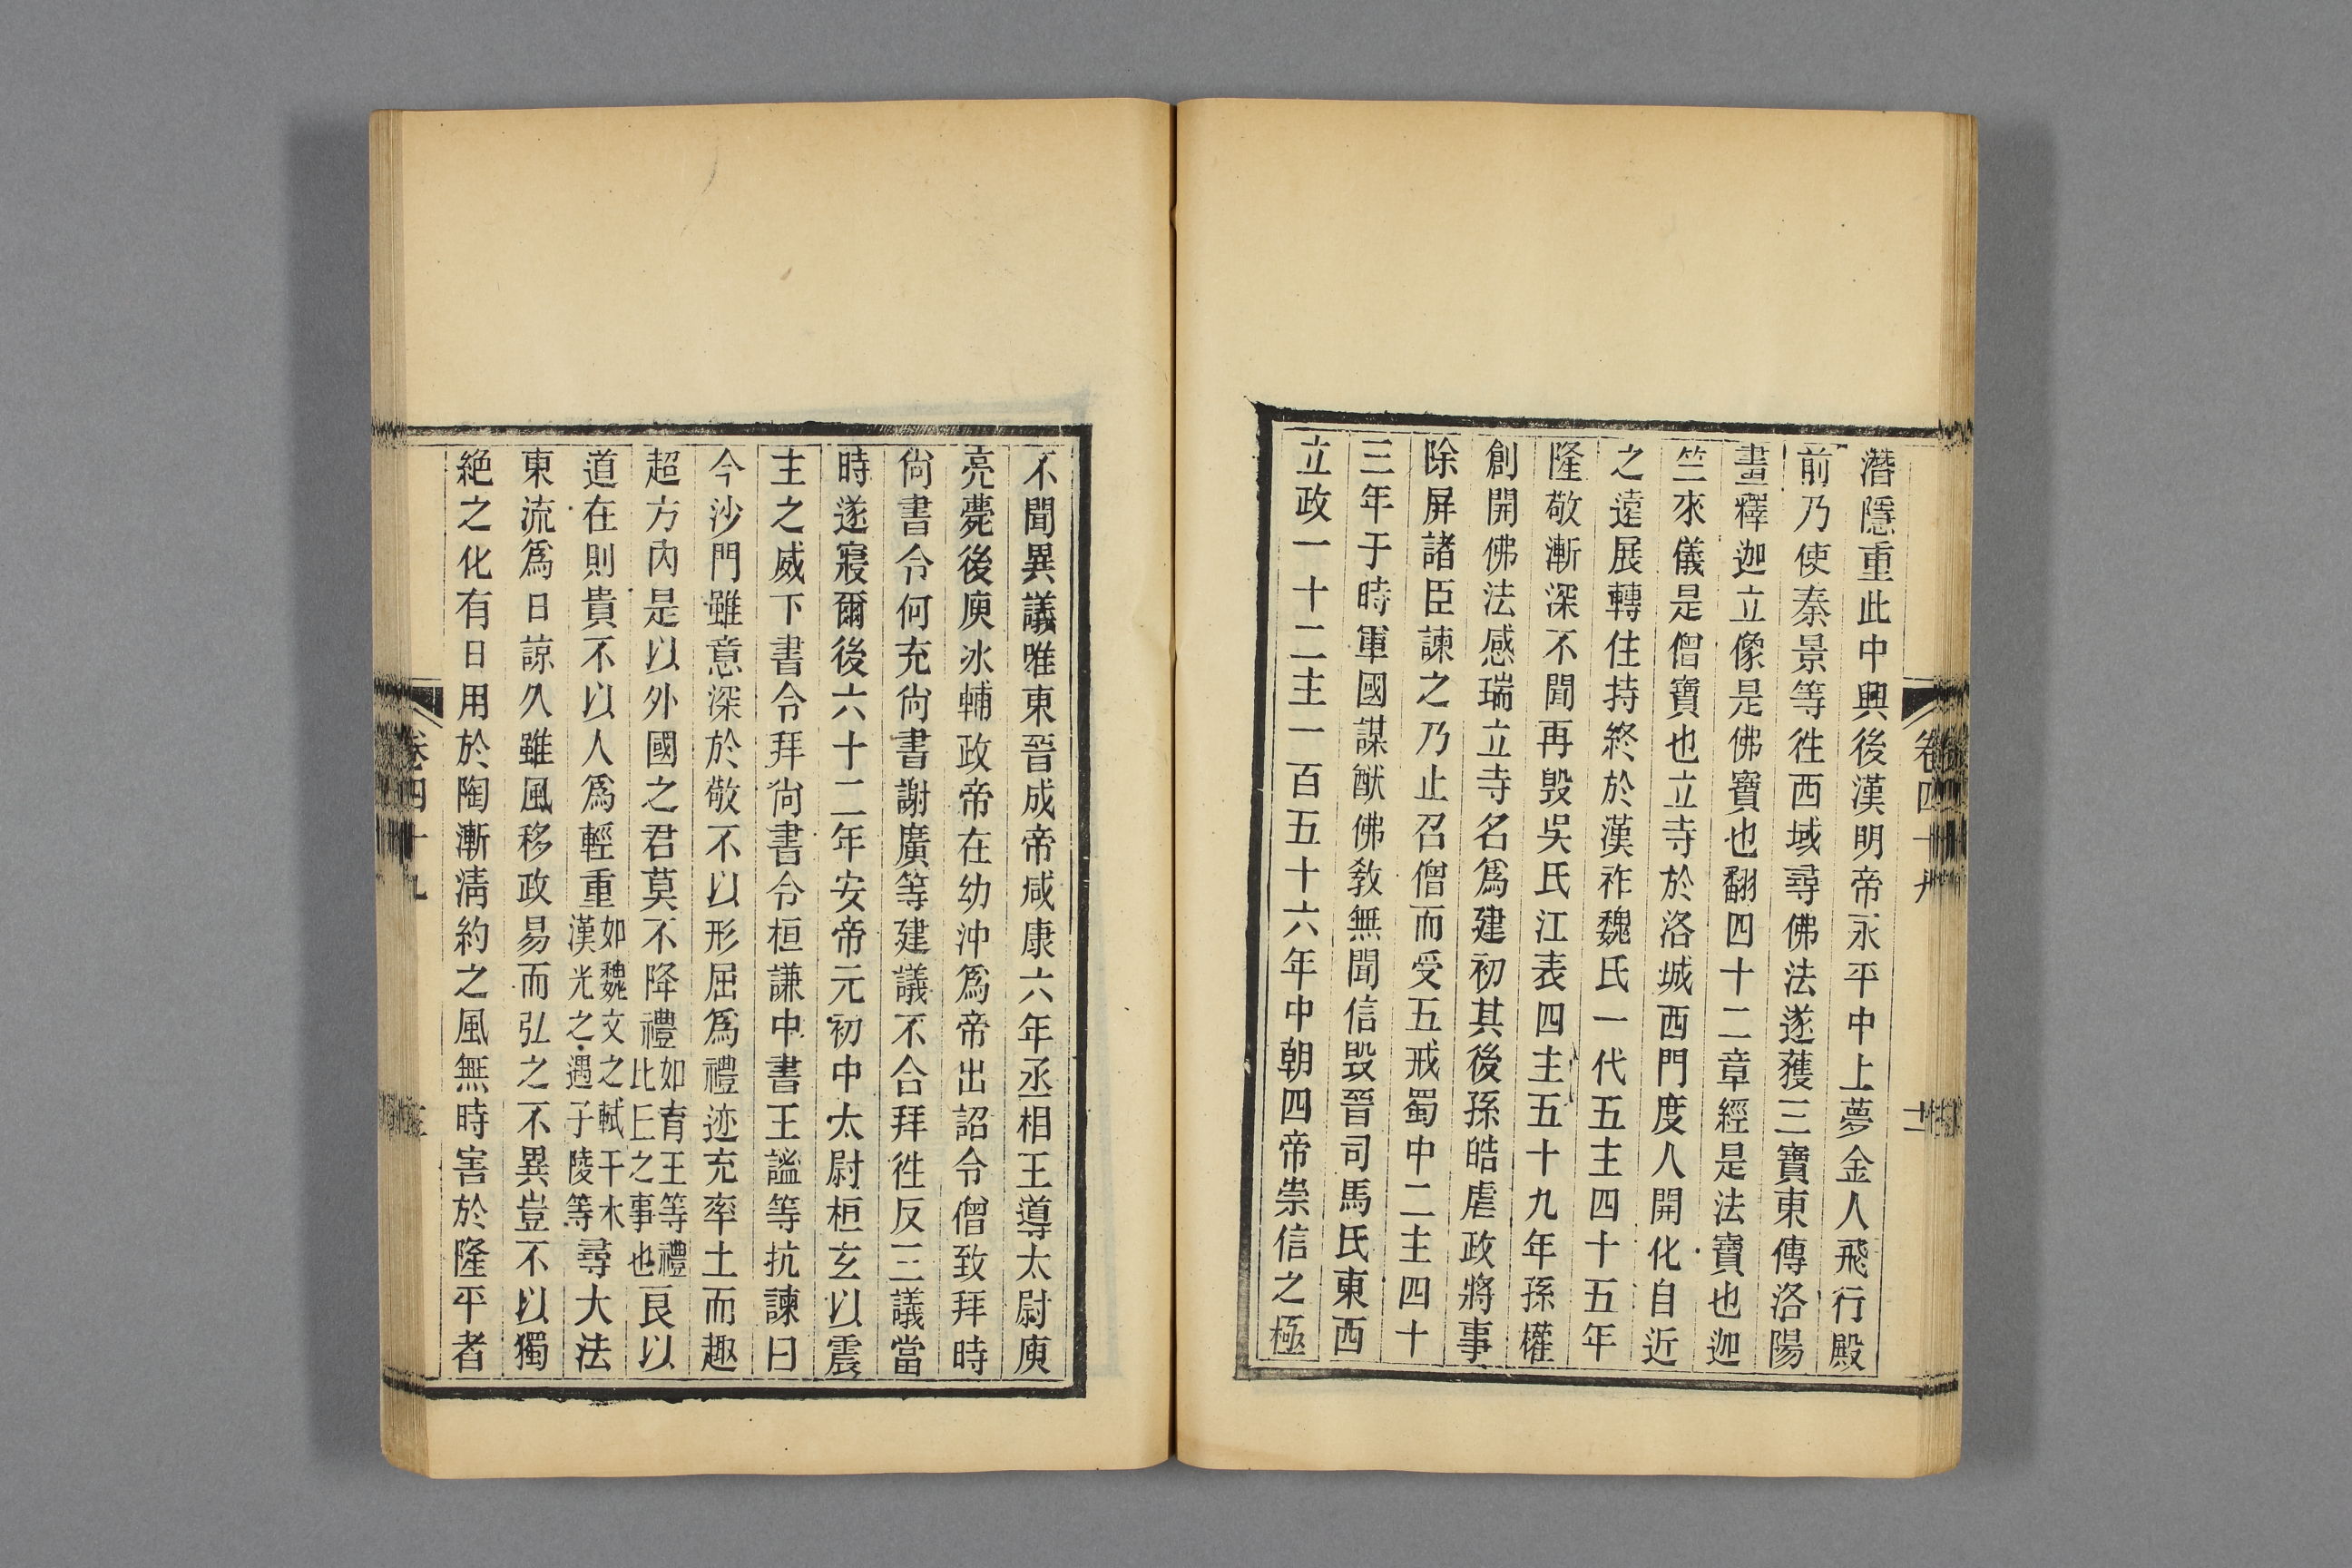 潛隱重此中興後漢明帝永平中上夢金人飛行殿
前乃使秦景等徃西域尋佛法遂獲三寶東傳洛陽
畫釋迦立像是佛寶也翻四十二章經是法寶也迦
竺來儀是僧寶也立寺於洛城西門度人開化自近
之遠展轉住持終於漢祚魏氏一代五主四十五年
隆敬漸深不聞再毀吳氏江表四主五十九年孫權
創開佛法感瑞立寺名爲建初其後孫皓虐政將事
除屏諸臣諫之乃止召僧而受五戒蜀中二主四十
三年于時軍國謀猷佛敎無聞信毀晉司馬氏東西
立政一十二主一百五十六年中朝四帝崇信之極
不聞異議唯東晉成帝咸康六年丞相王導太尉庾
亮薨後庾冰輔政帝在幼沖爲帝出詔令僧致拜時
尙書令何充尙書謝廣等建議不合拜徃反三議當
時遂寢爾後六十二年安帝元初中太尉桓玄以震
主之威下書令拜尙書令桓謙中書王謐等抗諫曰
今沙門雖意深於敬不以形屈爲禮迹充率土而趣
超方內是以外國之君莫不降禮如育王等禮比丘之事也良以
道在則貴不以人爲輕重如魏文之軾干木漢光之遇子陵等尋大法
東流爲日諒久雖風移政易而弘之不異豈不以獨
絶之化有日用於陶漸淸約之風無時害於隆平者
卷四十九